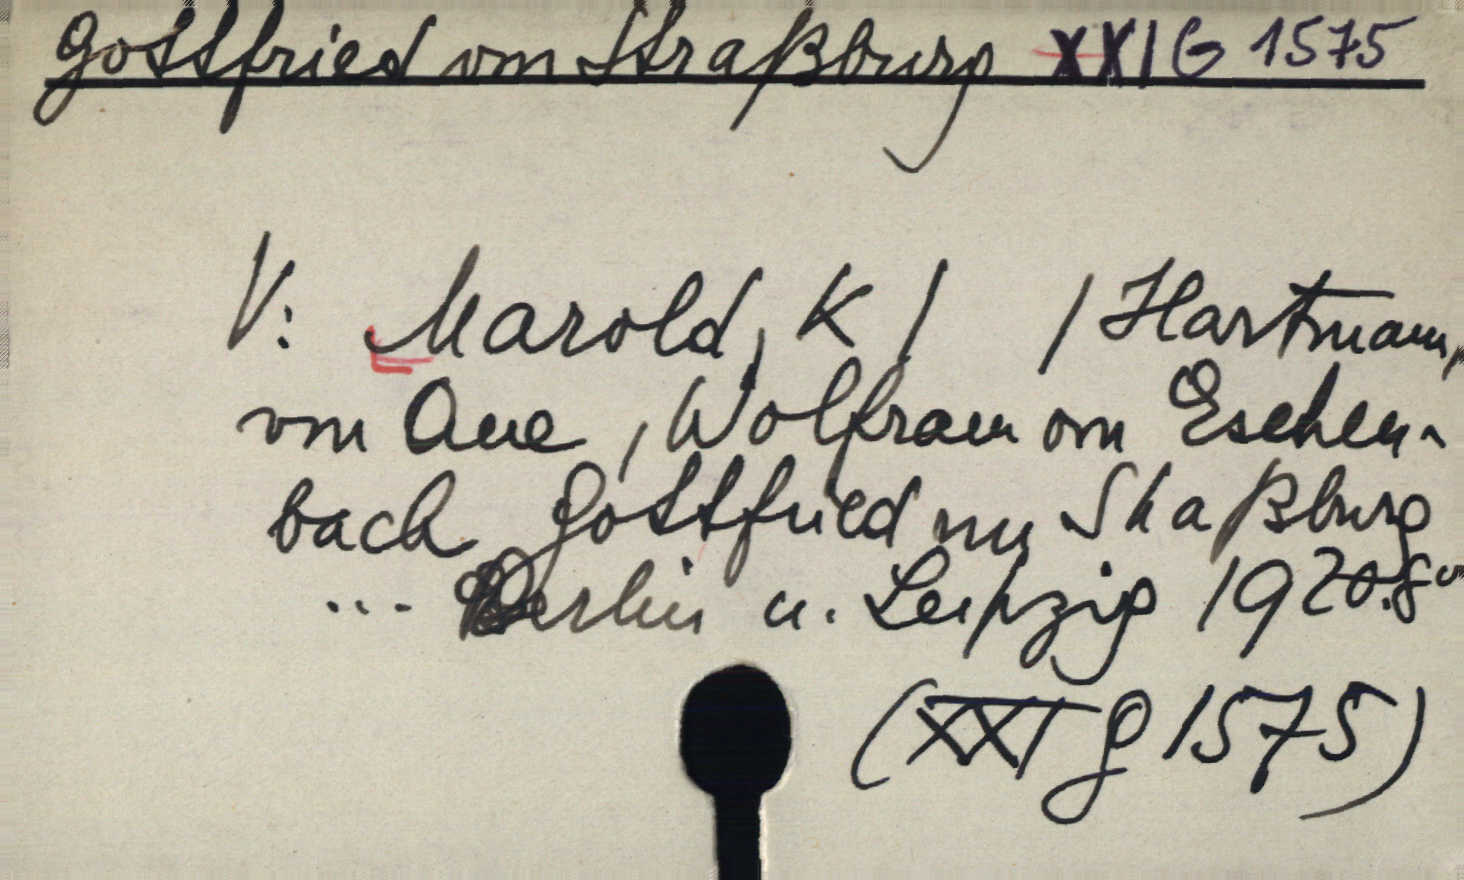 Gottfried von Straßburg XXI G 1575
V: Marold, K / / Hartmann
von Aue, Wolfram von Eschen-
bach Gottfried von Straßburg
... Berlin u. Leipzig 1920. 8vo
(XXI G 1575)